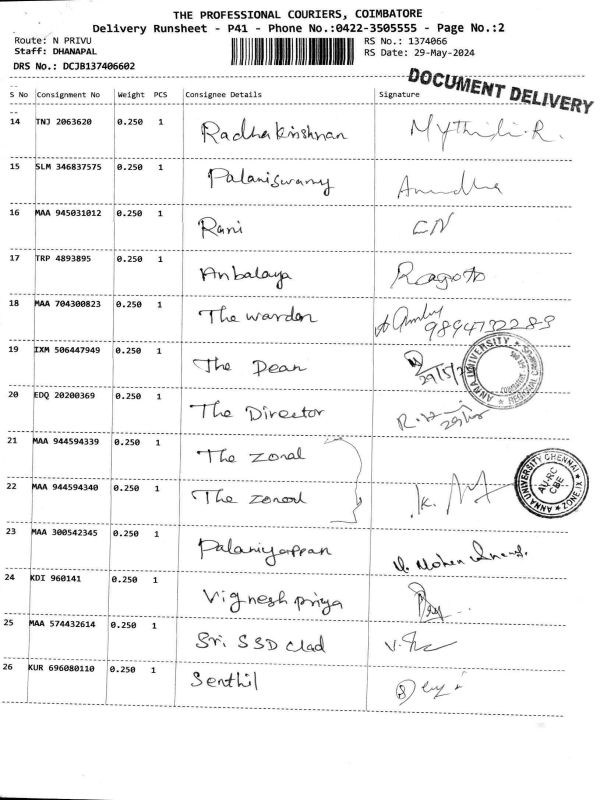 THE PROFESSIONAL COURIERS, COIMBATORE
Delivery Runsheet - P41 - Phone No.:0422-3505555 - Page No.:2
Route: N PRIVU RS No.: 1374066
Staff: DHANAPAL RS Date: 29-May-2024
DRS No.: DCJB137406602
DOCUMENT DELIVERY
S No Consignment No Weight PCS Consignee Details Signature
14 TNJ 2063620 0.250 1 Radhakrishnan Mythili.R.
15 SLM 346837575 0.250 1 Palaniswamy Anudha
16 MAA 945031012 0.250 1 Rani CN
17 TRP 4893895 0.250 1 Anbalaya
18 MAA 704300823 0.250 1 The warden
19 IXM 506447949 0.250 1 The Dean 29/5/24
ANNA UNIVERSITY REGIONAL COIMBATORE
20 EDQ 20200369 0.250 1 The Director
21 MAA 944594339 0.250 1 The zonal
22 MAA 944594340 0.250 1 The zonal
ANNA UNIVERSITY CHENNAI ZONE.IX AU-RC CBE
23 MAA 300542345 0.250 1 Palaniyappan
24 KDI 960141 0.250 1 Vignesh priya
25 MAA 574432614 0.250 1 Sri SSD Clad
26 KUR 696080110 0.250 1 Senthil